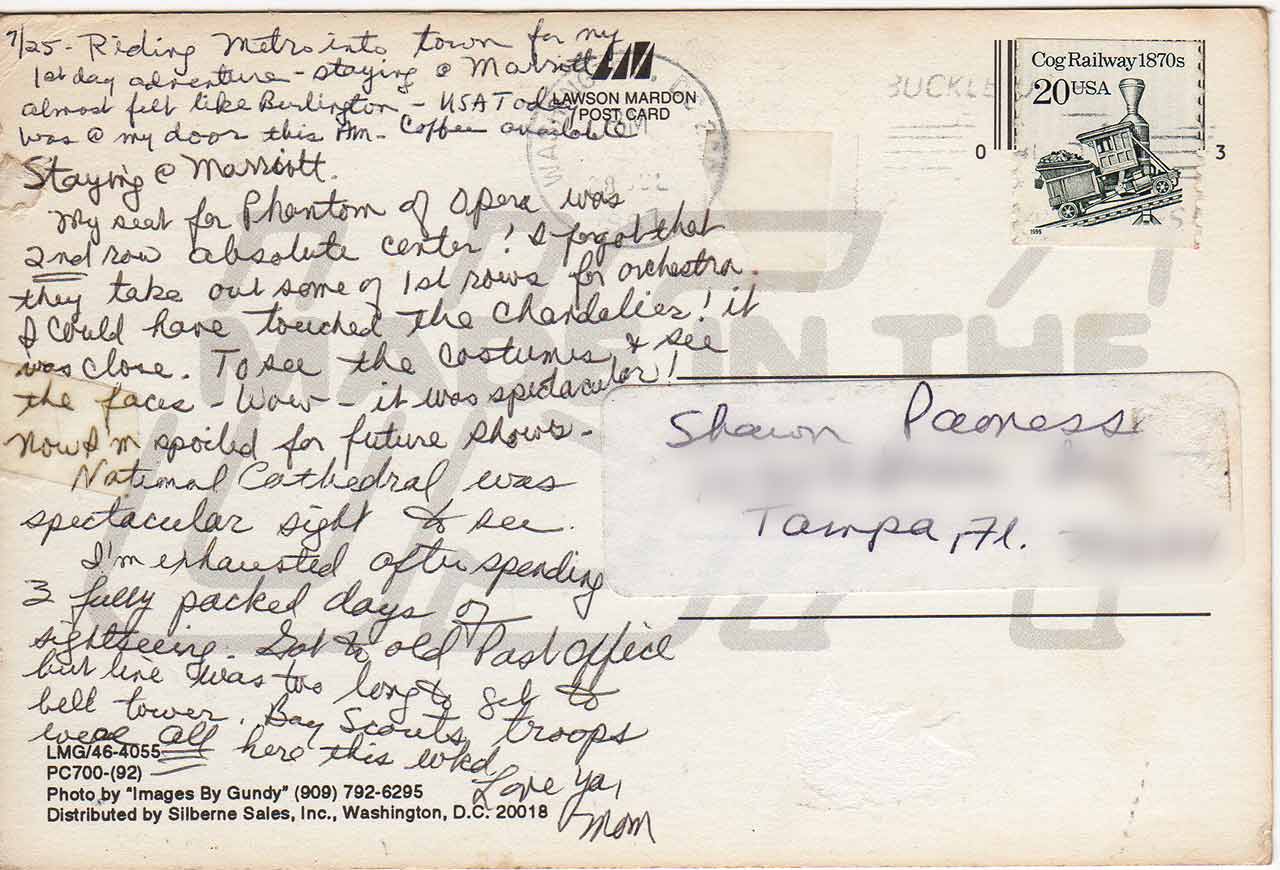 7/25- Riding Metro into town for my
1st day adventure - staying @ Marriott
almost felt like Burlington - USA Today
was @ my door this AM - Coffee available
Staying @ Marriott.
My seat for Phantom of Opera was
2nd row absolute center! I forgot that
they take out some of 1st rows for orchestra.
I could have touched the Chandalier! it
was close. To see the costumes & see
the faces - Wow - it was spectacular!
Now I'm spoiled for future shows -
National Cathedral was
spectacular sight to see.
I'm exhausted after spending
3 fully packed days of
sightseeing. Got to old Post Office
but line was too long to get to
bell tower. Boy Scouts troops
were all here this wkd
Love Ya,
Mom
LAWSON MARDON
POST CARD
BUCKLE U
Cog Railway 1870s
20 USA
1995
0 3
MADE IN THE
USA
Sharon
Tampa, Fl.
LMG/46-4055
PC700-(92)
Photo by "Images By Gundy" (909) 792-6295
Distributed by Silberne Sales, Inc., Washington, D.C. 20018